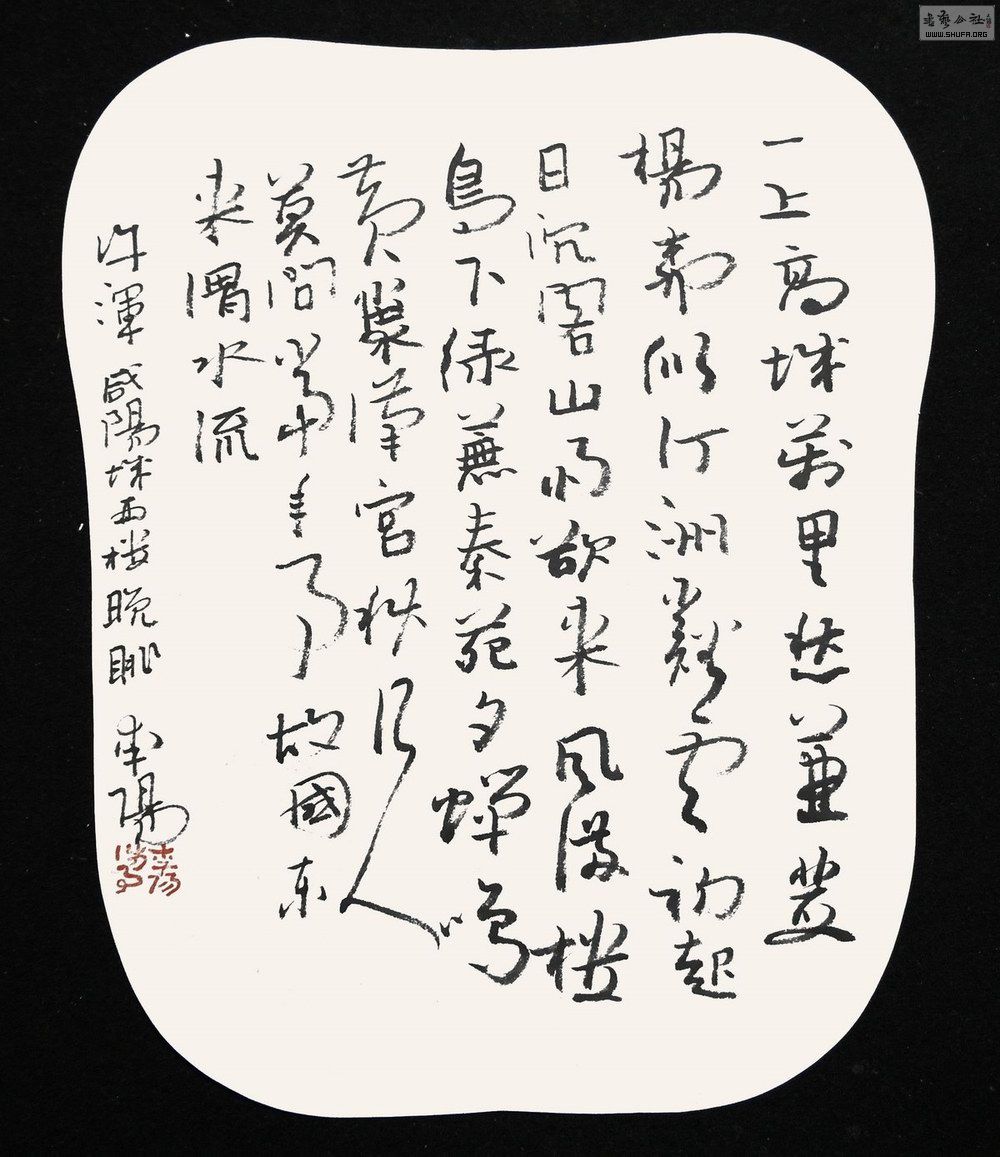 一上高城萬里愁蒹葭
楊柳似汀洲谿雲初起
日沉閣山雨欲来风满樓
鳥下綠蕪秦苑夕蟬鳴
黄葉漢宮秋行人
莫問當年事故國东
来渭水流
许渾咸陽城西楼晚眺
書藝公社
WWW.SHUFA.ORG